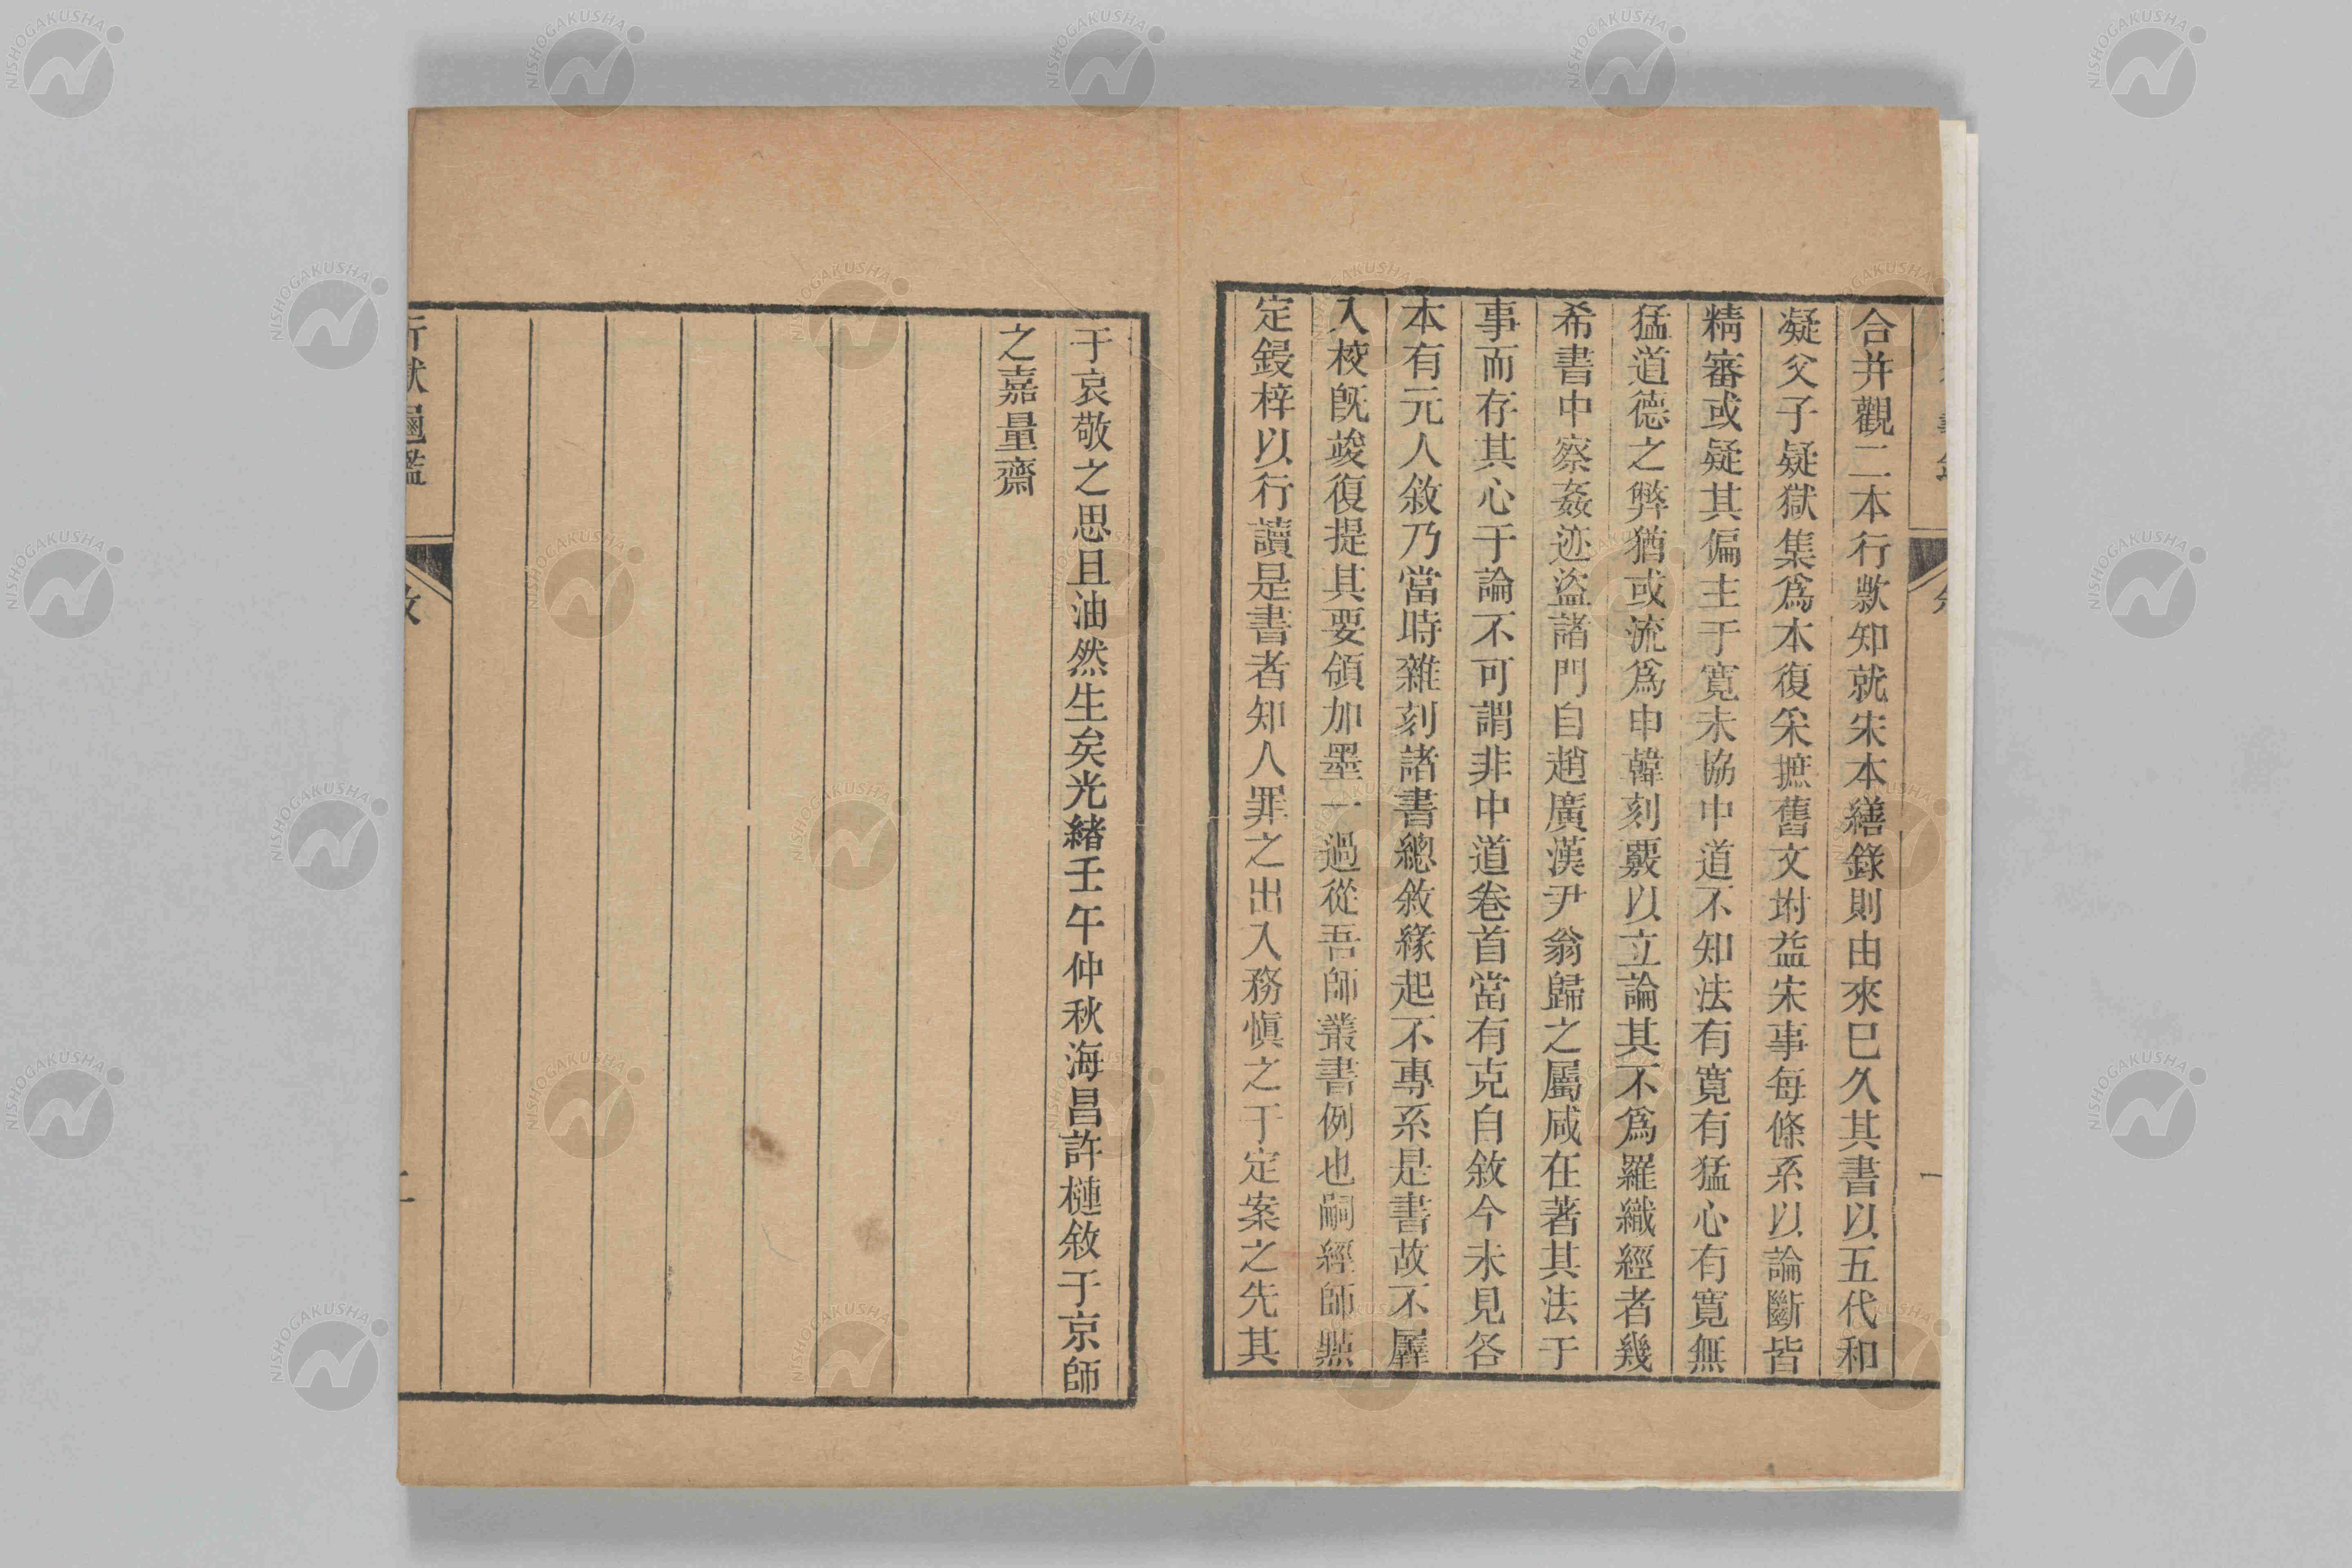 合并觀二本行欵知就宋本繕錄則由來已久其書以五代和
凝父子疑獄集爲本復采摭舊文坿益宋事每條系以論斷皆
精審或疑其偏主于寬未協中道不知法有寛有猛心有寬無
猛道德之弊猶或流爲申韓刻覈以立論其不爲羅織經者幾
希書中察姦迹盜諸門自趙廣漢尹翁歸之屬咸在著其法于
事而存其心于論不可謂非中道卷首當有克自敘今未見各
本有元人敘乃當時雜刻諸書總敘緣起不專系是書故不羼
入校旣竣復提其要領加墨一過從吾師叢書例也嗣經師㸃
定鋟梓以行讀是書者知人罪之出入務愼之于定案之先其
于哀敬之思且油然生矣光緒壬午仲秋海昌許槤敘于京師
之嘉量齋
二
NISHOGAKUSHA